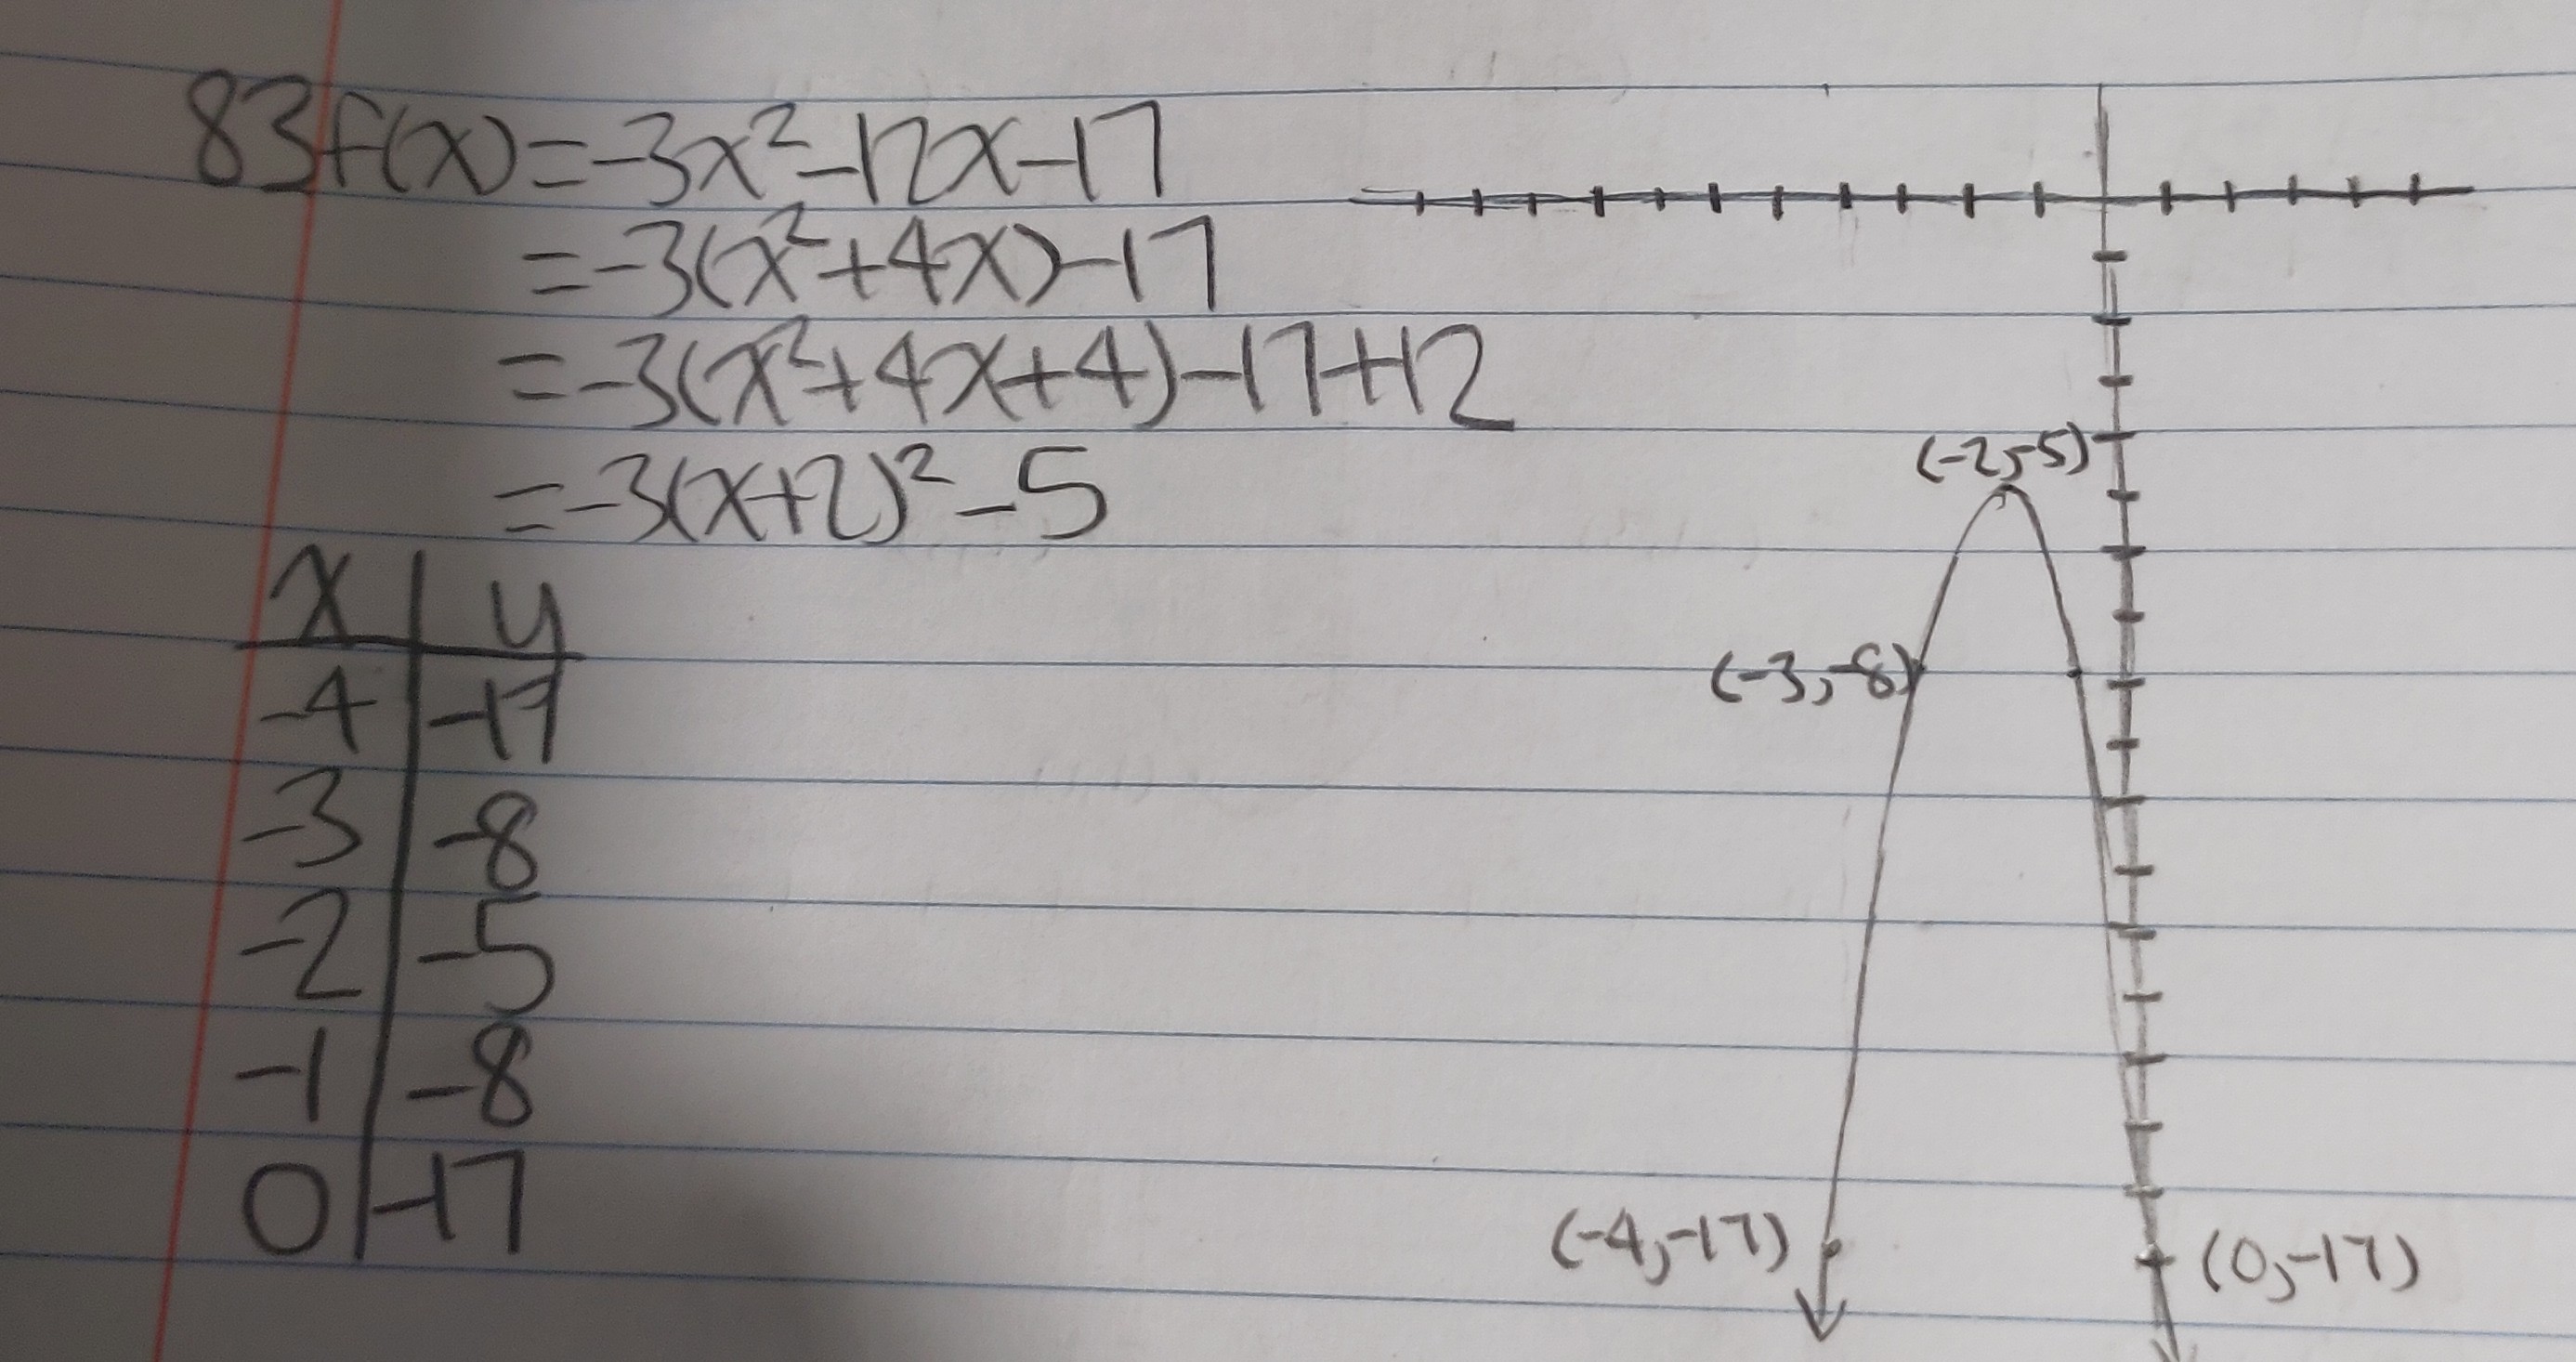 83 f(x)=-3x²-12x-17
=-3(x²+4x)-17
=-3(x²+4x+4)-17+12
=-3(x+2)²-5
x | y
-4 | -17
-3 | -8
-2 | -5
-1 | -8
0 | -17
(-2,-5)
(-3,-8)
(-4,-17)
(0,-17)